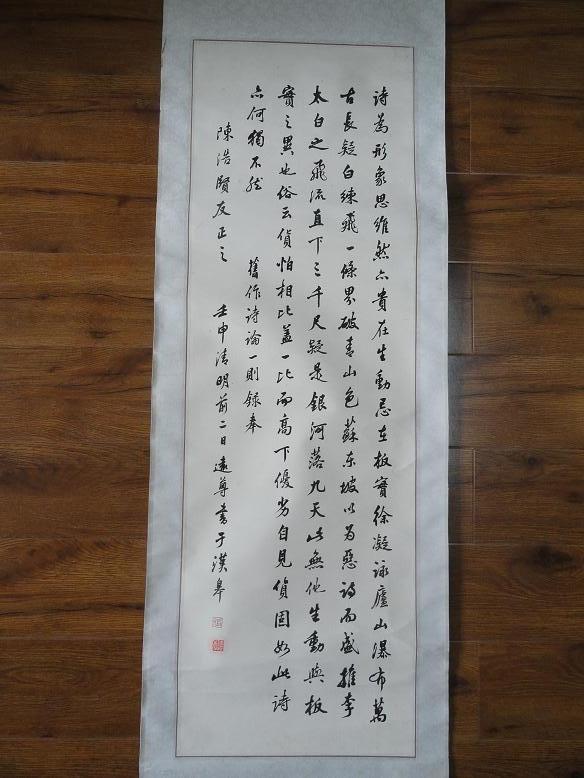 詩為形象思維然亦貴在生動忌在板實徐凝詠廬山瀑布萬
古長疑白練飛一條界破青山色蘇东坡以为惡詩而盛推李
太白之飛流直下三千尺疑是銀河落九天此無他生動與板
實之異也俗云貨怕相比蓋一比而高下優劣自見貨固如此詩
亦何獨不然　舊作詩論一則録奉
陳浩賢友正之　壬申清明前二日遠尊書于漢皋